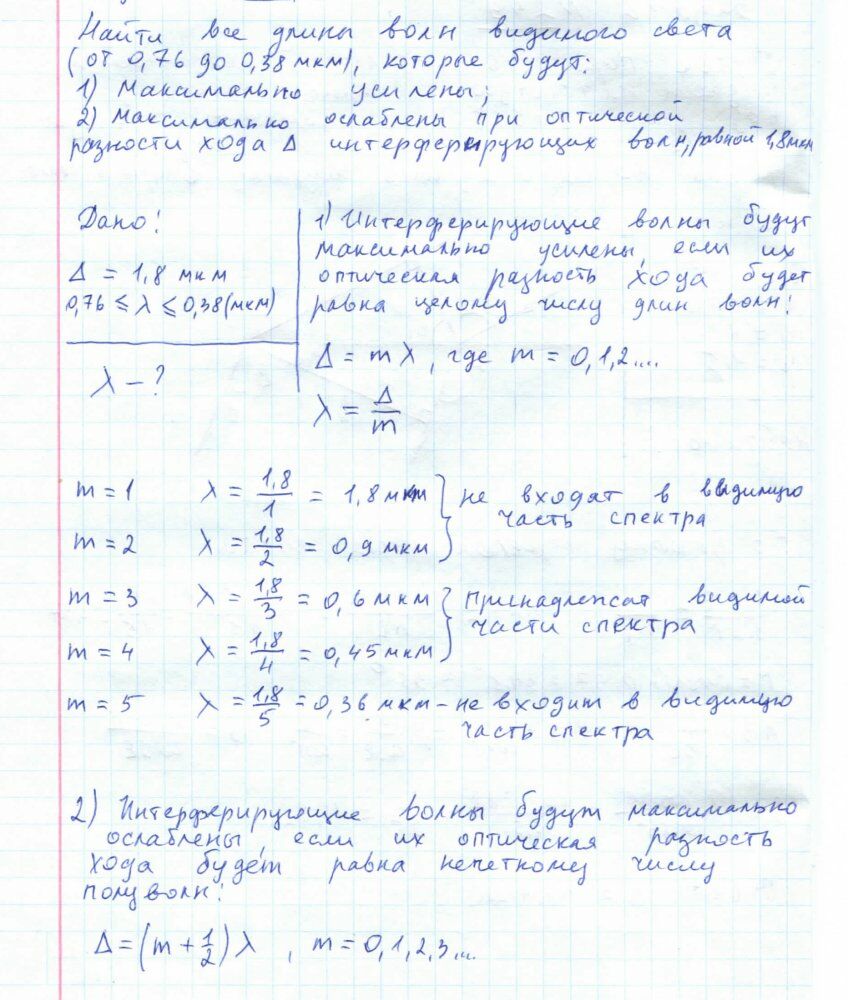 Найти все длины волн видимого света
(от 0,76 до 0,38 мкм), которые будут:
1) максимально усилены;
2) максимально ослаблены при оптической
разности хода Δ интерферирующих волн, равной 1,8 мкм
Дано:
Δ = 1,8 мкм
0,76 ≤ λ ≤ 0,38 (мкм)
λ - ?
1) Интерферирующие волны будут
максимально усилены, если их
оптическая разность хода будет
равна целому числу длин волн:
Δ = mλ, где m = 0,1,2....
λ = Δ/m
m = 1 λ = 1,8/1 = 1,8 мкм } не входят в видимую
m = 2 λ = 1,8/2 = 0,9 мкм } часть спектра
m = 3 λ = 1,8/3 = 0,6 мкм } принадлежат видимой
m = 4 λ = 1,8/4 = 0,45 мкм } части спектра
m = 5 λ = 1,8/5 = 0,36 мкм - не входит в видимую
часть спектра
2) Интерферирующие волны будут максимально
ослаблены, если их оптическая разность
хода будет равна нечетному числу
полуволн:
Δ = (m + 1/2) λ, m = 0,1,2,3...